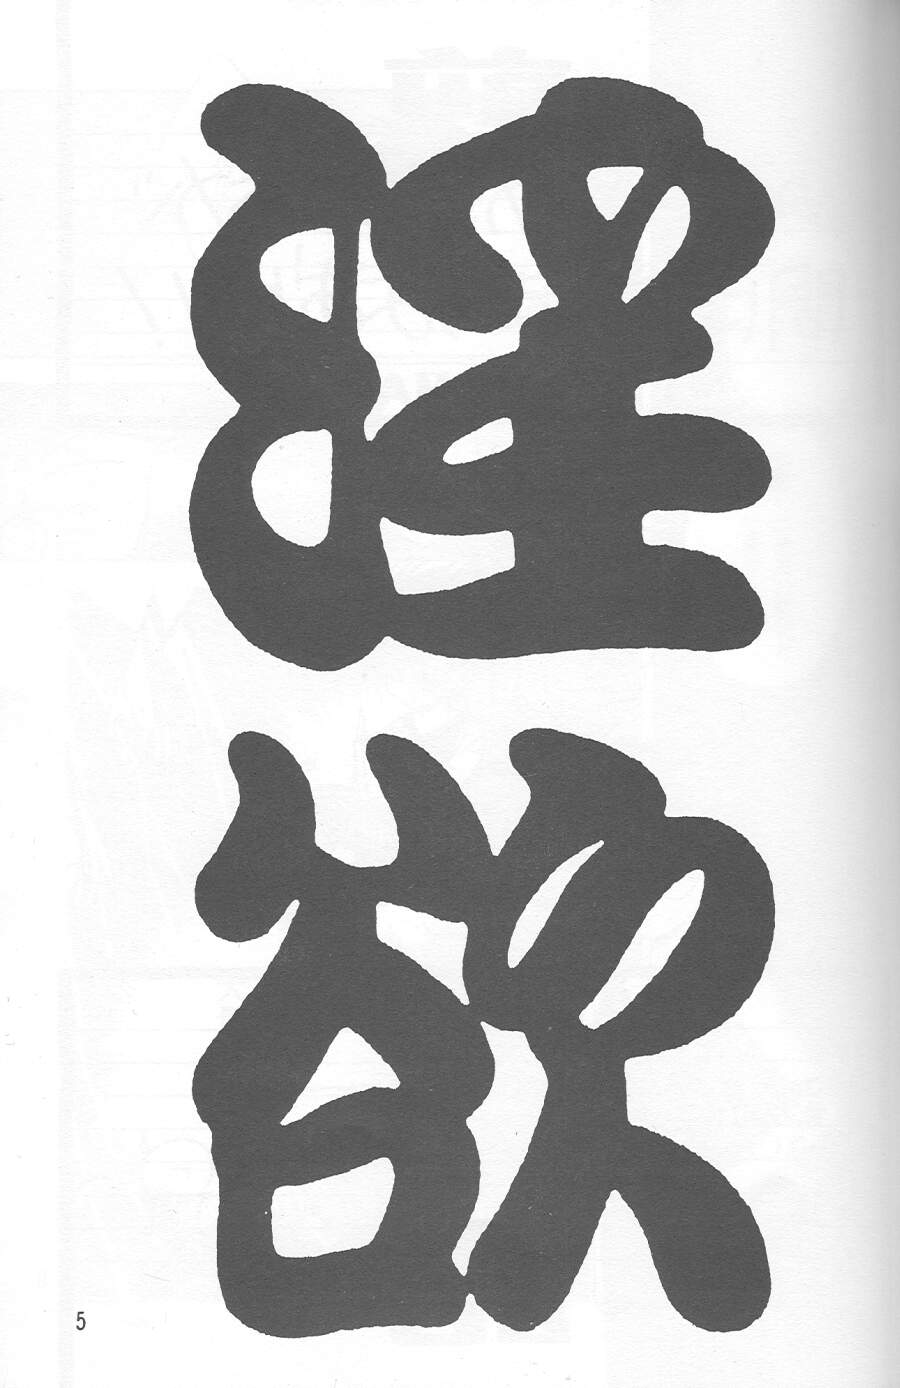 淫欲
5